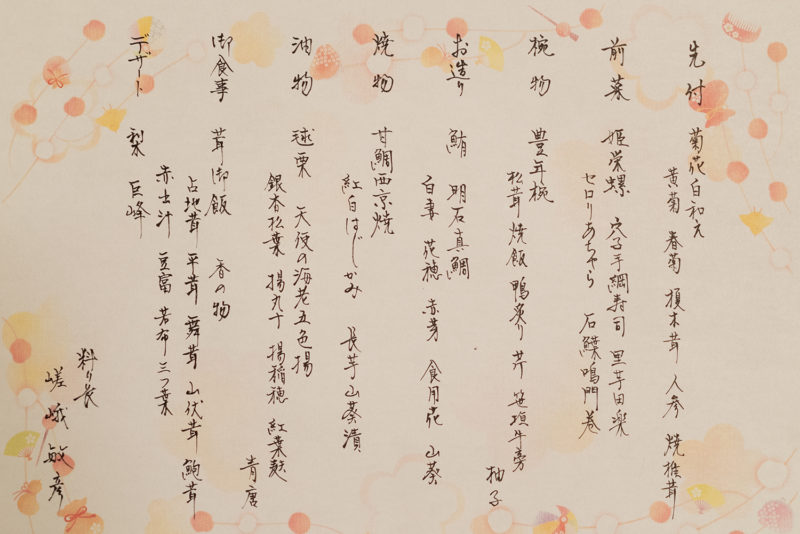 先付 菊花白和え
黄菊 春菊 榎木茸 人参 焼椎茸
前菜 姫栄螺 穴子手綱寿司 里芋田楽
セロリあちゃら 石鰈鳴門巻
椀物 豊年椀
松茸 焼飯 鴨炙り 芹 笹垣牛蒡 柚子
お造り 鮪 明石真鯛
白妻 花穂 赤芽 食用花 山葵
焼物 甘鯛西京焼
紅白はじかみ 長芋山葵漬
油物 毬栗 天使の海老五色揚
銀杏松葉 揚丸十 揚稲穂 紅葉麩 青唐
御食事 茸御飯 香の物
占地茸 平茸 舞茸 山伏茸 鮑茸
赤出汁 豆富 若布 三つ葉
デザート 梨 巨峰
料り長
嵯峨敏彦